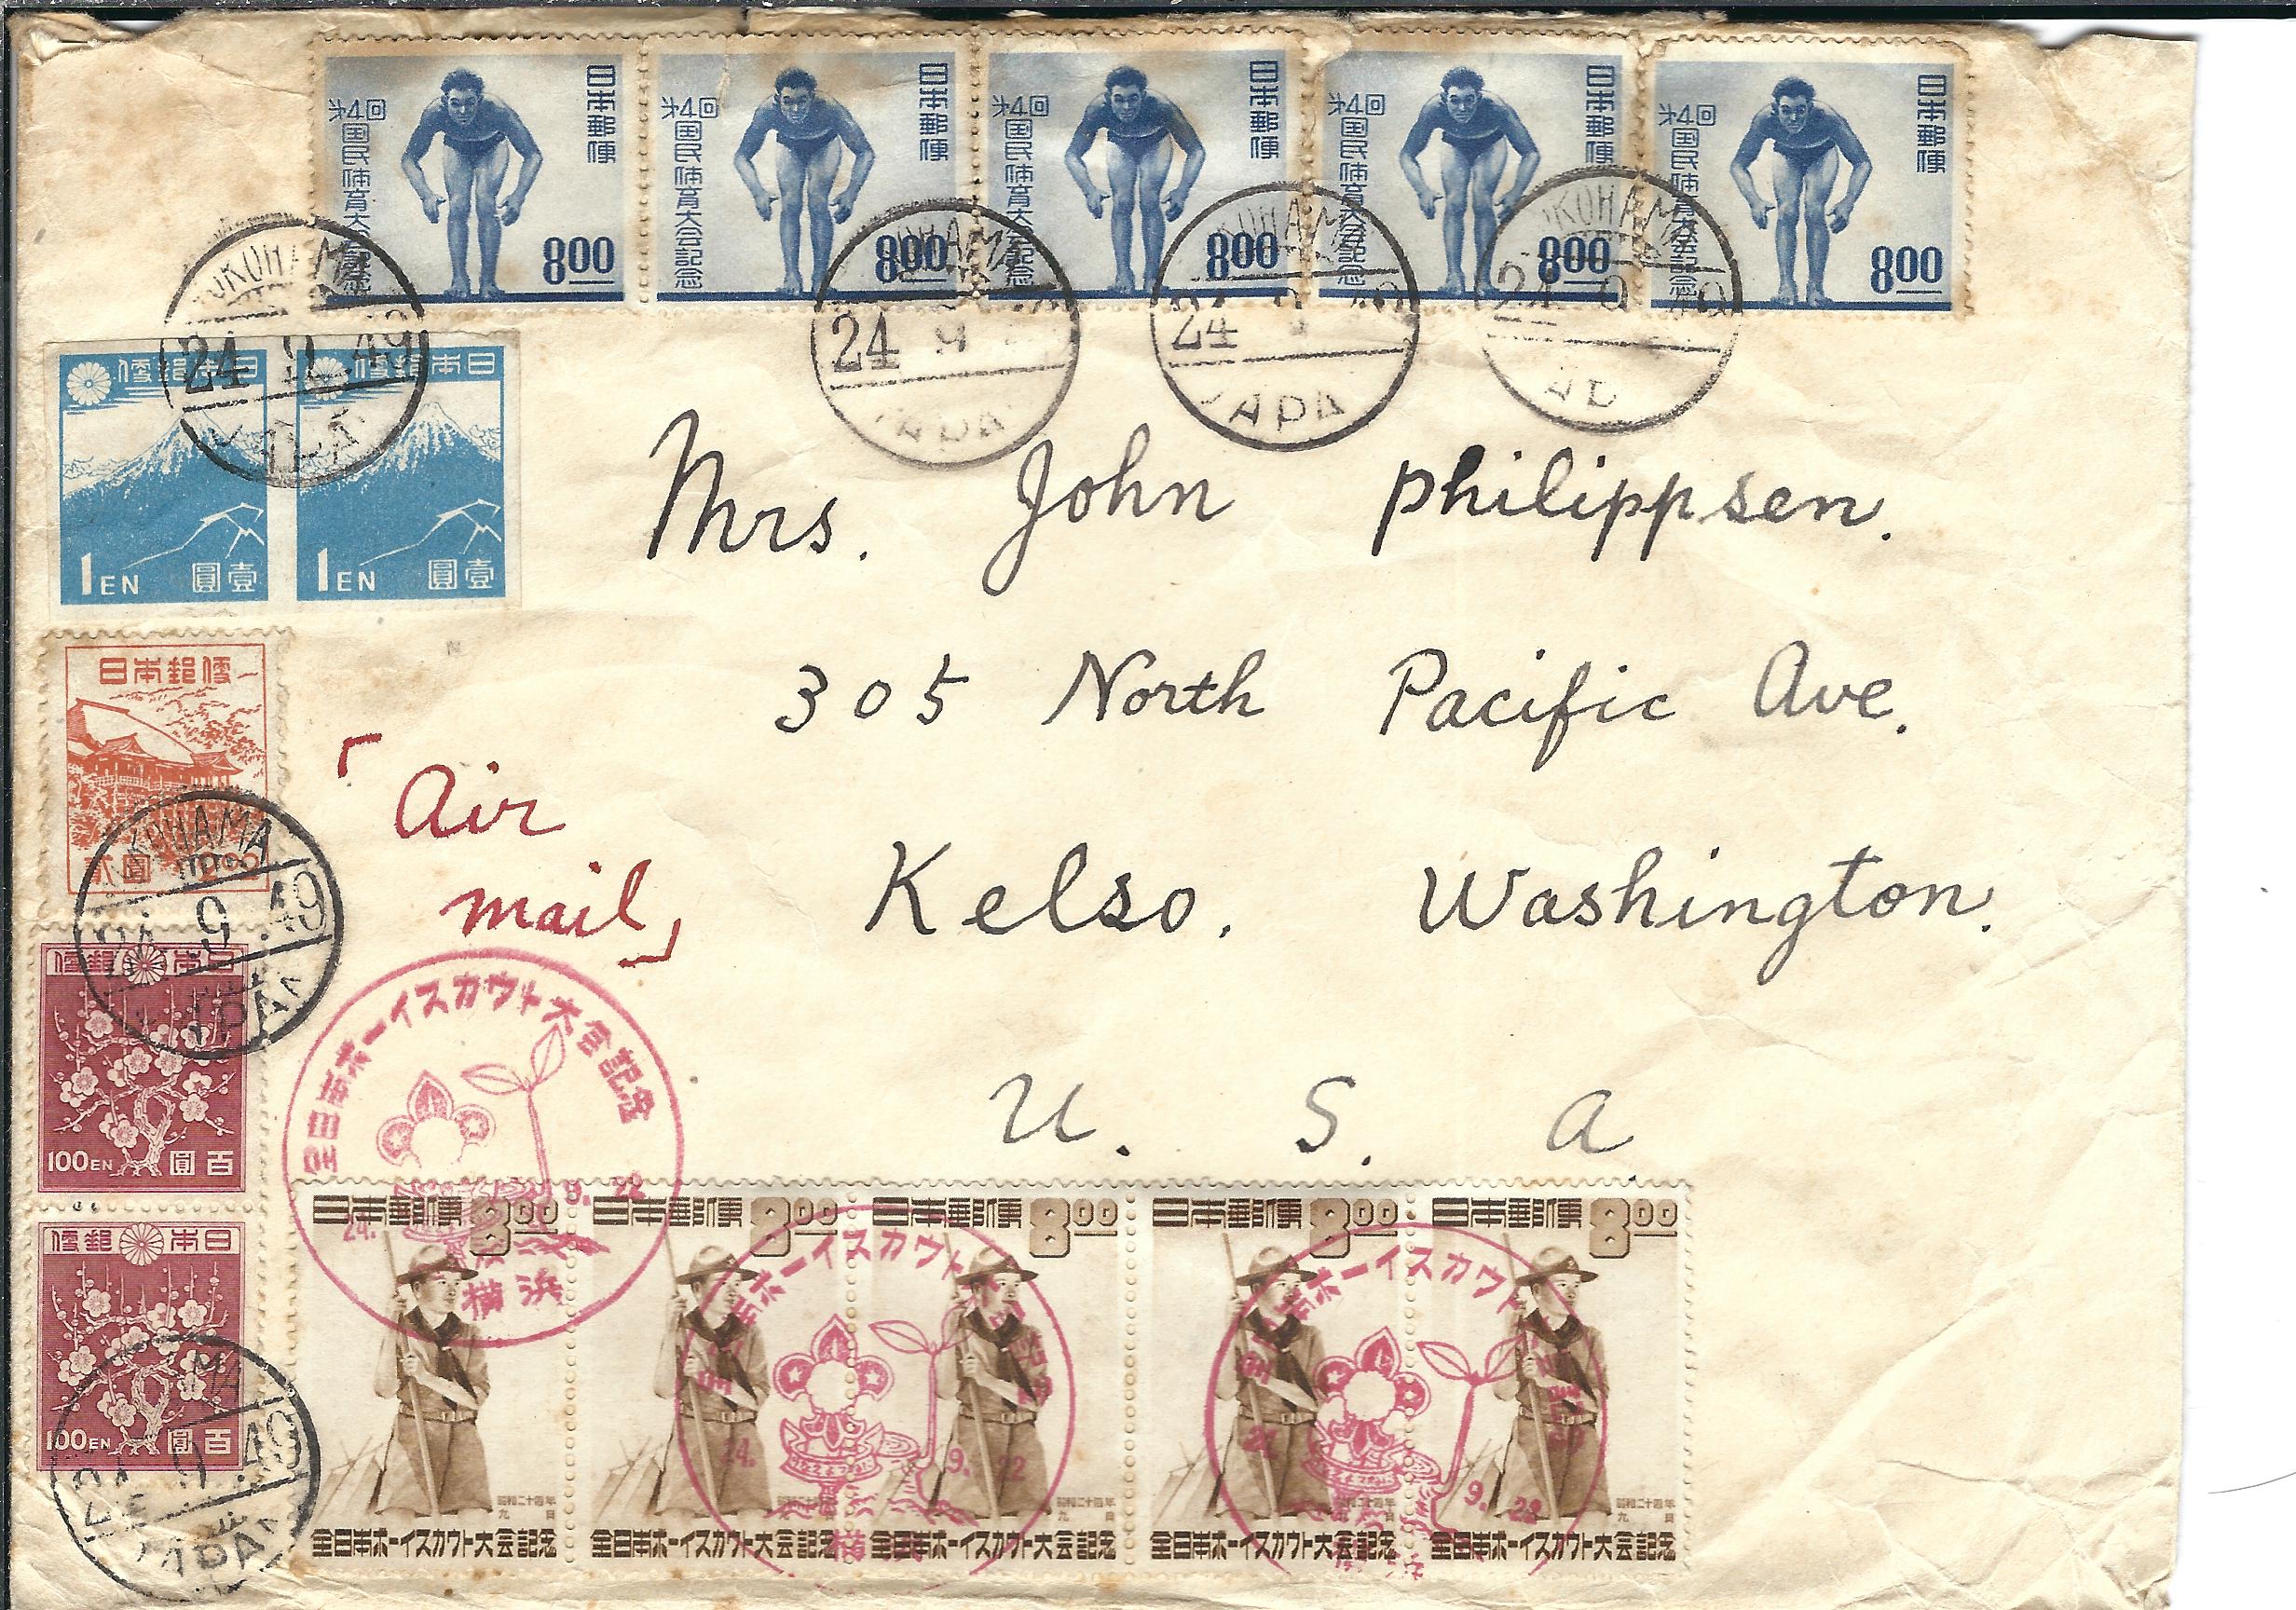 日本郵便
第4回
国民体育大会記念
800
日本郵便
第4回
国民体育大会記念
800
日本郵便
第4回
国民体育大会記念
800
日本郵便
第4回
国民体育大会記念
800
日本郵便
第4回
国民体育大会記念
800
YOKOHAMA
24 9 .49
JAPAN
24 9
JAPA
24 9 49
JAPA
YOKOHAMA
24 9 49
便郵本日
1EN 圓壹
便郵本日
1EN 圓壹
Mrs. John Philippsen.
305 North Pacific Ave.
「Air
mail」
Kelso. Washington.
U. S. A.
日本郵便
貳圓
YOKOHAMA
24. 9 .49
JAPAN
便郵 本日
100EN 圓百
便郵 本日
100EN 圓百
24 9 .49
JAPAN
全日本ボーイスカウト大会記念
24. 9. 22
横浜
日本郵便 800
昭和二十四年
九月
全日本ボーイスカウト大会記念
日本郵便 800
昭和二十四年
九月
全日本ボーイスカウト大会記念
日本郵便 800
昭和二十四年
九月
全日本ボーイスカウト大会記念
日本郵便 800
昭和二十四年
九月
全日本ボーイスカウト大会記念
日本郵便 800
昭和二十四年
九月
全日本ボーイスカウト大会記念
全日本ボーイスカウト
24. 9. 22
全日本ボーイスカウト
24. 9. 22